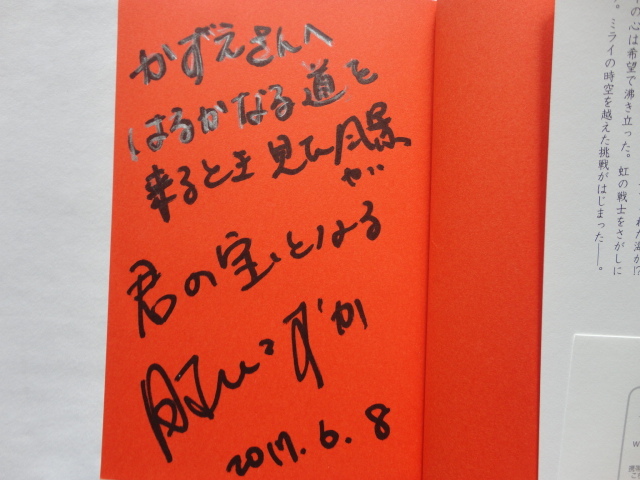 かずえさんへ
はるかなる道を
来るとき 見た風景
が
君の宝となる
2017.6.8
の心は希望で沸き立った。虹の戦士をさがしに
。ミライの時空を越えた挑戦がはじまった――。